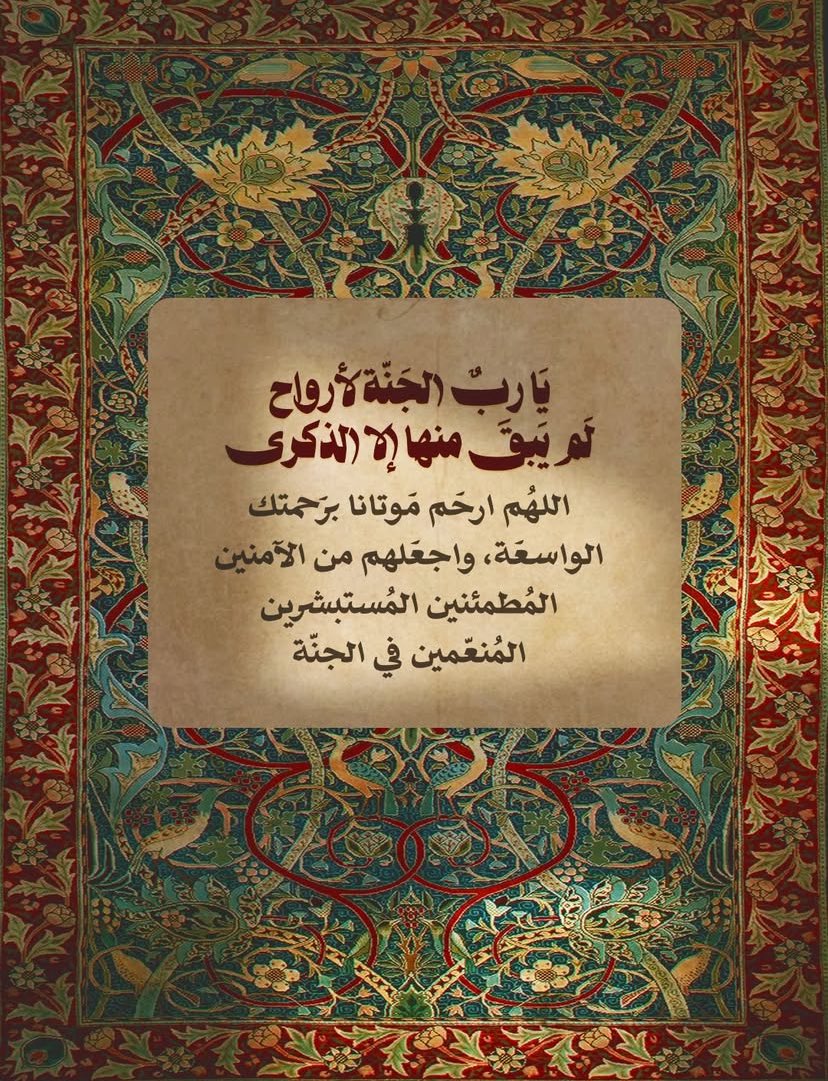 يَا ربٌ الجَنّة لأرواح
لَم يَبقَ منها إلا الذكرى
اللهُم ارحَم مَوتانا برَحمتك
الواسعَة، واجعَلهم من الآمنين
المُطمئنين المُستبشرين
المُنعّمين في الجنّة